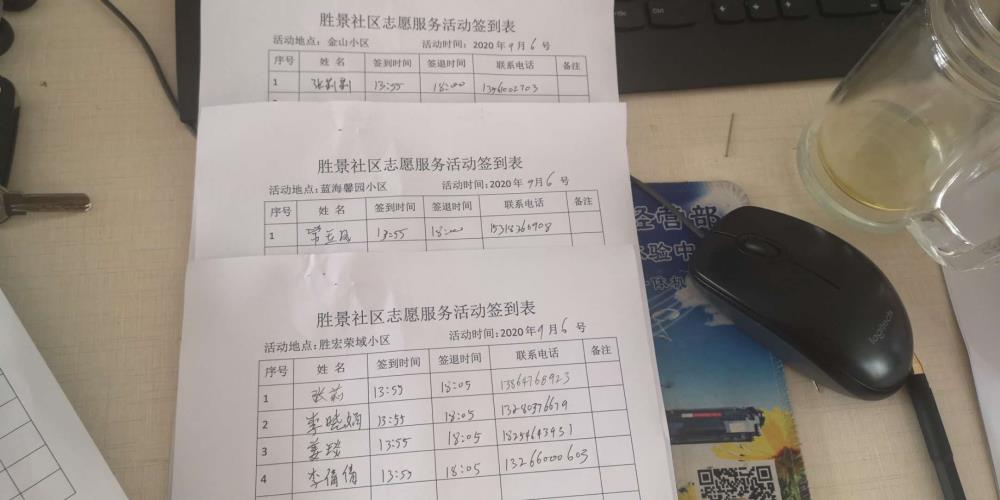 胜景社区志愿服务活动签到表
活动地点：金山小区 活动时间：2020年9月6号
序号 姓名 签到时间 签退时间 联系电话 备注
1 13:55 18:00 13561002703
胜景社区志愿服务活动签到表
活动地点：蓝海馨园小区 活动时间：2020年9月6号
序号 姓名 签到时间 签退时间 联系电话 备注
1 常玉凤 13:55 18:00 15318360908
胜景社区志愿服务活动签到表
活动地点：胜宏荣域小区 活动时间：2020年9月6号
序号 姓名 签到时间 签退时间 联系电话 备注
1 张莉 13:55 18:05 13864768923
2 李晓娟 13:55 18:05 13280376679
3 13:55 18:05 18254643931
4 李倩倩 13:55 18:05 13266000603
经营部
体验中
一体机
logitech